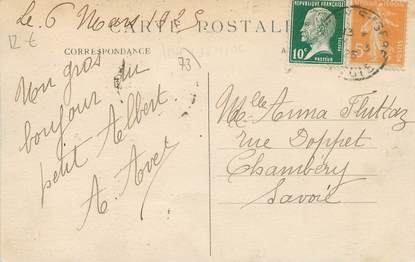 Le 6 Mars 1925
12 €
CARTE POSTALE
CORRESPONDANCE
73
REPUBLIQUE FRANÇAISE
10c
PASTEUR
5c
Mon gros
bonjour du
petit Albert
A.
Mlle Anna Fluttaz
rue Doppet
Chambéry
Savoie